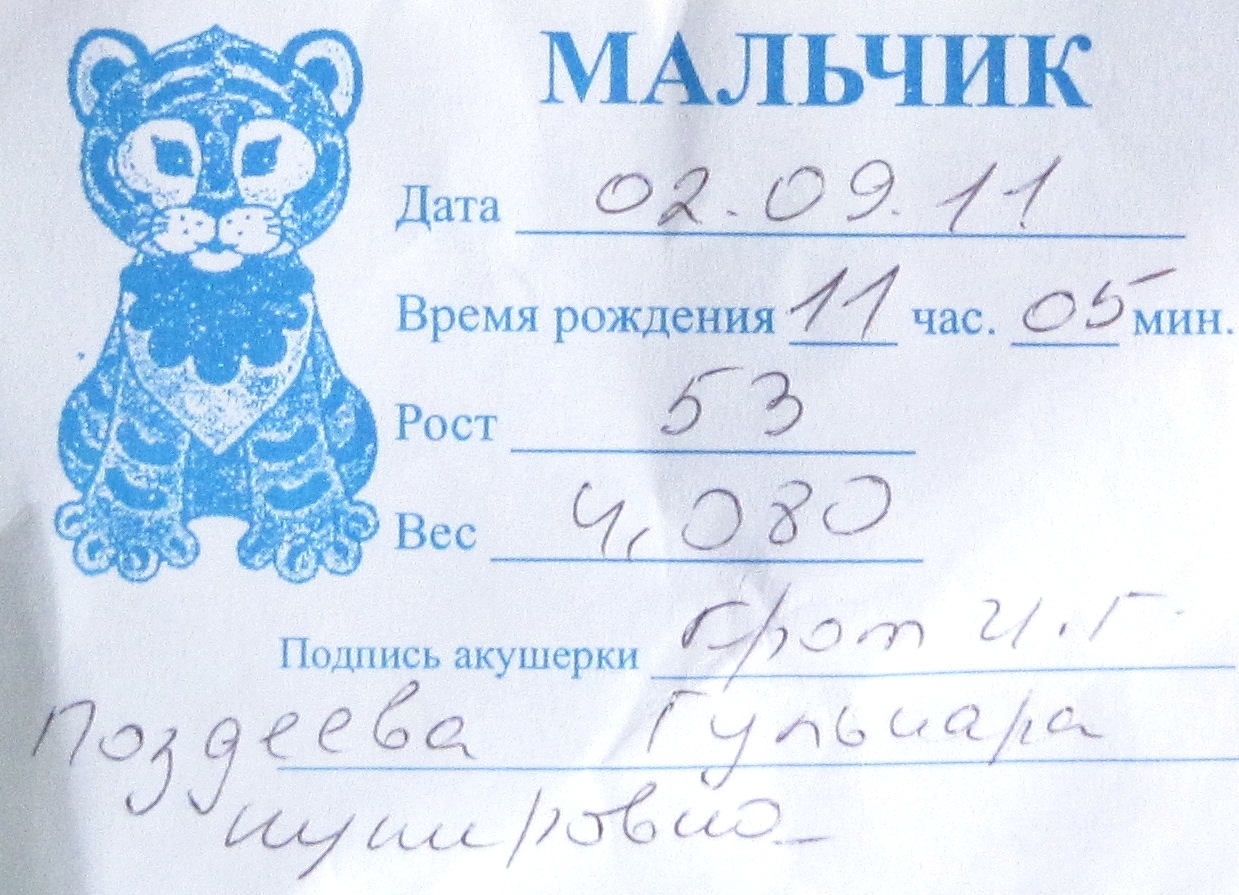 МАЛЬЧИК
Дата 02.09.11
Время рождения 11 час. 05 мин.
Рост 53
Вес 4,080
Подпись акушерки Грот И.Г.
Поздеева Гульнара